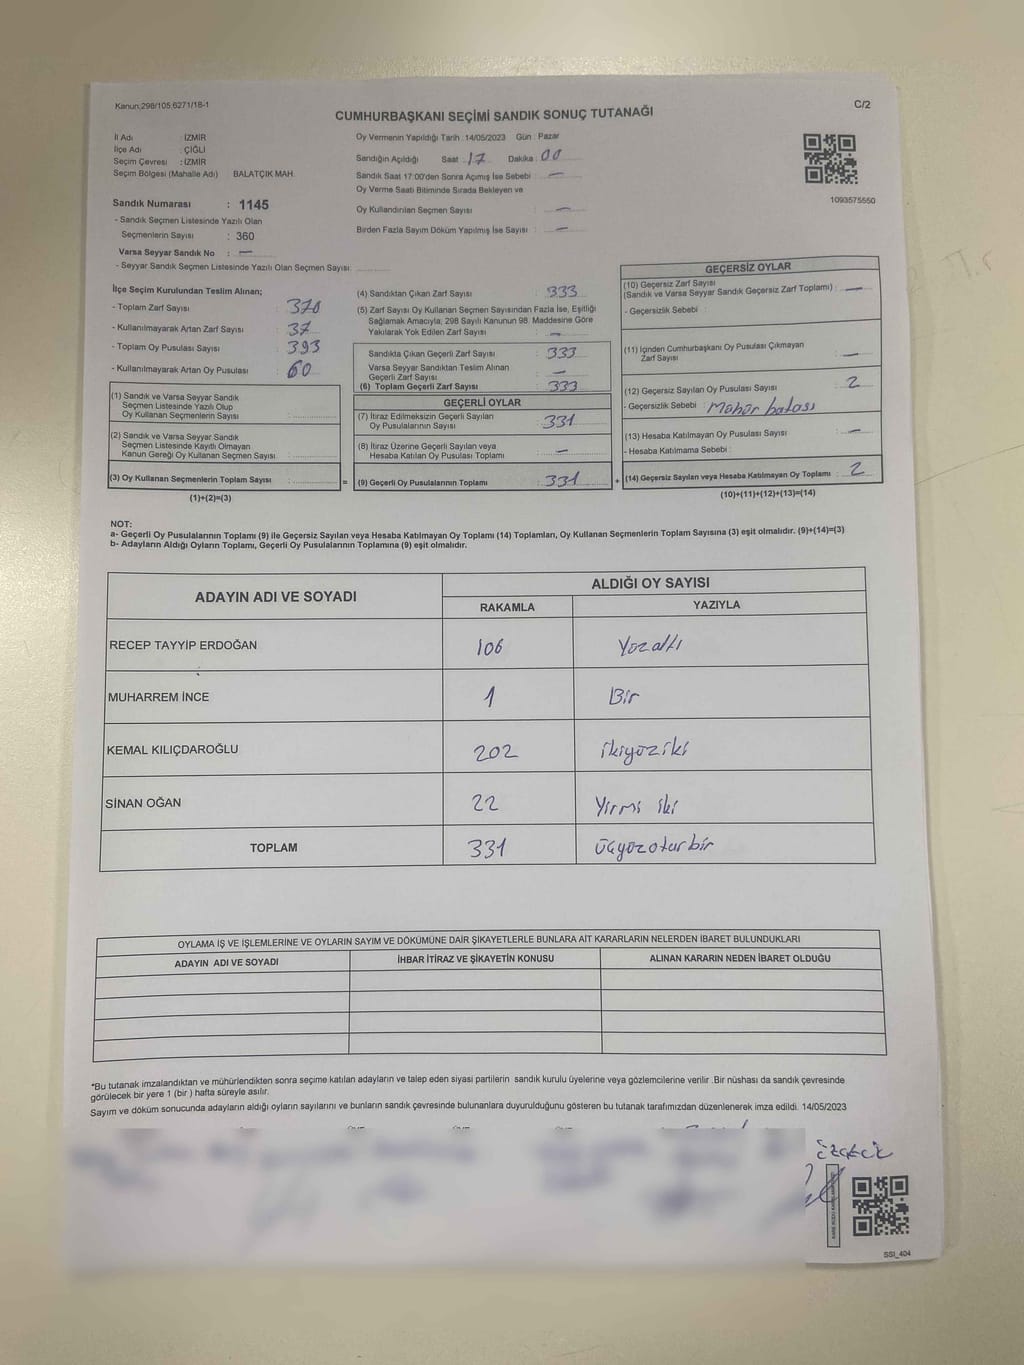 Kanun;298/105,6271/18-1
C/2
CUMHURBAŞKANI SEÇİMİ SANDIK SONUÇ TUTANAĞI
İl Adı : İZMİR
İlçe Adı : ÇİĞLİ
Seçim Çevresi : İZMİR
Seçim Bölgesi (Mahalle Adı) BALATÇIK MAH.
Sandık Numarası : 1145
- Sandık Seçmen Listesinde Yazılı Olan
Seçmenlerin Sayısı : 360
Varsa Seyyar Sandık No : —
- Seyyar Sandık Seçmen Listesinde Yazılı Olan Seçmen Sayısı:
Oy Vermenin Yapıldığı Tarih : 14/05/2023 Gün : Pazar
Sandığın Açıldığı Saat : 17 Dakika : 00
Sandık Saat 17:00'den Sonra Açımış İse Sebebi : —
Oy Verme Saati Bitiminde Sırada Bekleyen ve
Oy Kullandırılan Seçmen Sayısı : —
Birden Fazla Sayım Döküm Yapılmış İse Sayısı : —
1093575550
İlçe Seçim Kurulundan Teslim Alınan;
- Toplam Zarf Sayısı : 370
- Kullanılmayarak Artan Zarf Sayısı : 37
- Toplam Oy Pusulası Sayısı : 393
- Kullanılmayarak Artan Oy Pusulası : 60
(1) Sandık ve Varsa Seyyar Sandık
Seçmen Listesinde Yazılı Olup
Oy Kullanan Seçmenlerin Sayısı :
(2) Sandık ve Varsa Seyyar Sandık
Seçmen Listesinde Kayıtlı Olmayan
Kanun Gereği Oy Kullanan Seçmen Sayısı :
(3) Oy Kullanan Seçmenlerin Toplam Sayısı :
(1)+(2)=(3)
(4) Sandıktan Çıkan Zarf Sayısı : 333
(5) Zarf Sayısı Oy Kullanan Seçmen Sayısından Fazla İse, Eşitliği
Sağlamak Amacıyla, 298 Sayılı Kanunun 98. Maddesine Göre
Yakılarak Yok Edilen Zarf Sayısı : —
Sandıkta Çıkan Geçerli Zarf Sayısı : 333
Varsa Seyyar Sandıktan Teslim Alınan
Geçerli Zarf Sayısı : —
(6) Toplam Geçerli Zarf Sayısı : 333
GEÇERLİ OYLAR
(7) İtiraz Edilmeksizin Geçerli Sayılan
Oy Pusulalarının Sayısı : 331
(8) İtiraz Üzerine Geçerli Sayılan veya
Hesaba Katılan Oy Pusulası Toplamı : —
= (9) Geçerli Oy Pusulalarının Toplamı : 331
GEÇERSİZ OYLAR
(10) Geçersiz Zarf Sayısı
(Sandık ve Varsa Seyyar Sandık Geçersiz Zarf Toplamı) : —
- Geçersizlik Sebebi :
(11) İçinden Cumhurbaşkanı Oy Pusulası Çıkmayan
Zarf Sayısı : —
(12) Geçersiz Sayılan Oy Pusulası Sayısı : 2
- Geçersizlik Sebebi : Mühür hatası
(13) Hesaba Katılmayan Oy Pusulası Sayısı : —
- Hesaba Katılmama Sebebi :
+ (14) Geçersiz Sayılan veya Hesaba Katılmayan Oy Toplamı : 2
(10)+(11)+(12)+(13)=(14)
NOT:
a- Geçerli Oy Pusulalarının Toplamı (9) ile Geçersiz Sayılan veya Hesaba Katılmayan Oy Toplamı (14) Toplamları, Oy Kullanan Seçmenlerin Toplam Sayısına (3) eşit olmalıdır. (9)+(14)=(3)
b- Adayların Aldığı Oyların Toplamı, Geçerli Oy Pusulalarının Toplamına (9) eşit olmalıdır.
ADAYIN ADI VE SOYADI
ALDIĞI OY SAYISI
RAKAMLA YAZIYLA
RECEP TAYYİP ERDOĞAN 106 Yüzaltı
MUHARREM İNCE 1 Bir
KEMAL KILIÇDAROĞLU 202 ikiyüziki
SİNAN OĞAN 22 Yirmi iki
TOPLAM 331 üçyüzotuzbir
OYLAMA İŞ VE İŞLEMLERİNE VE OYLARIN SAYIM VE DÖKÜMÜNE DAİR ŞİKAYETLERLE BUNLARA AİT KARARLARIN NELERDEN İBARET BULUNDUKLARI
ADAYIN ADI VE SOYADI İHBAR İTİRAZ VE ŞİKAYETİN KONUSU ALINAN KARARIN NEDEN İBARET OLDUĞU
*Bu tutanak imzalandıktan ve mühürlendikten sonra seçime katılan adayların ve talep eden siyasi partilerin sandık kurulu üyelerine veya gözlemcilerine verilir .Bir nüshası da sandık çevresinde
görülecek bir yere 1 (bir ) hafta süreyle asılır.
Sayım ve döküm sonucunda adayların aldığı oyların sayılarını ve bunların sandık çevresinde bulunanlara duyurulduğunu gösteren bu tutanak tarafımızdan düzenlenerek imza edildi. 14/05/2023
SSI_404